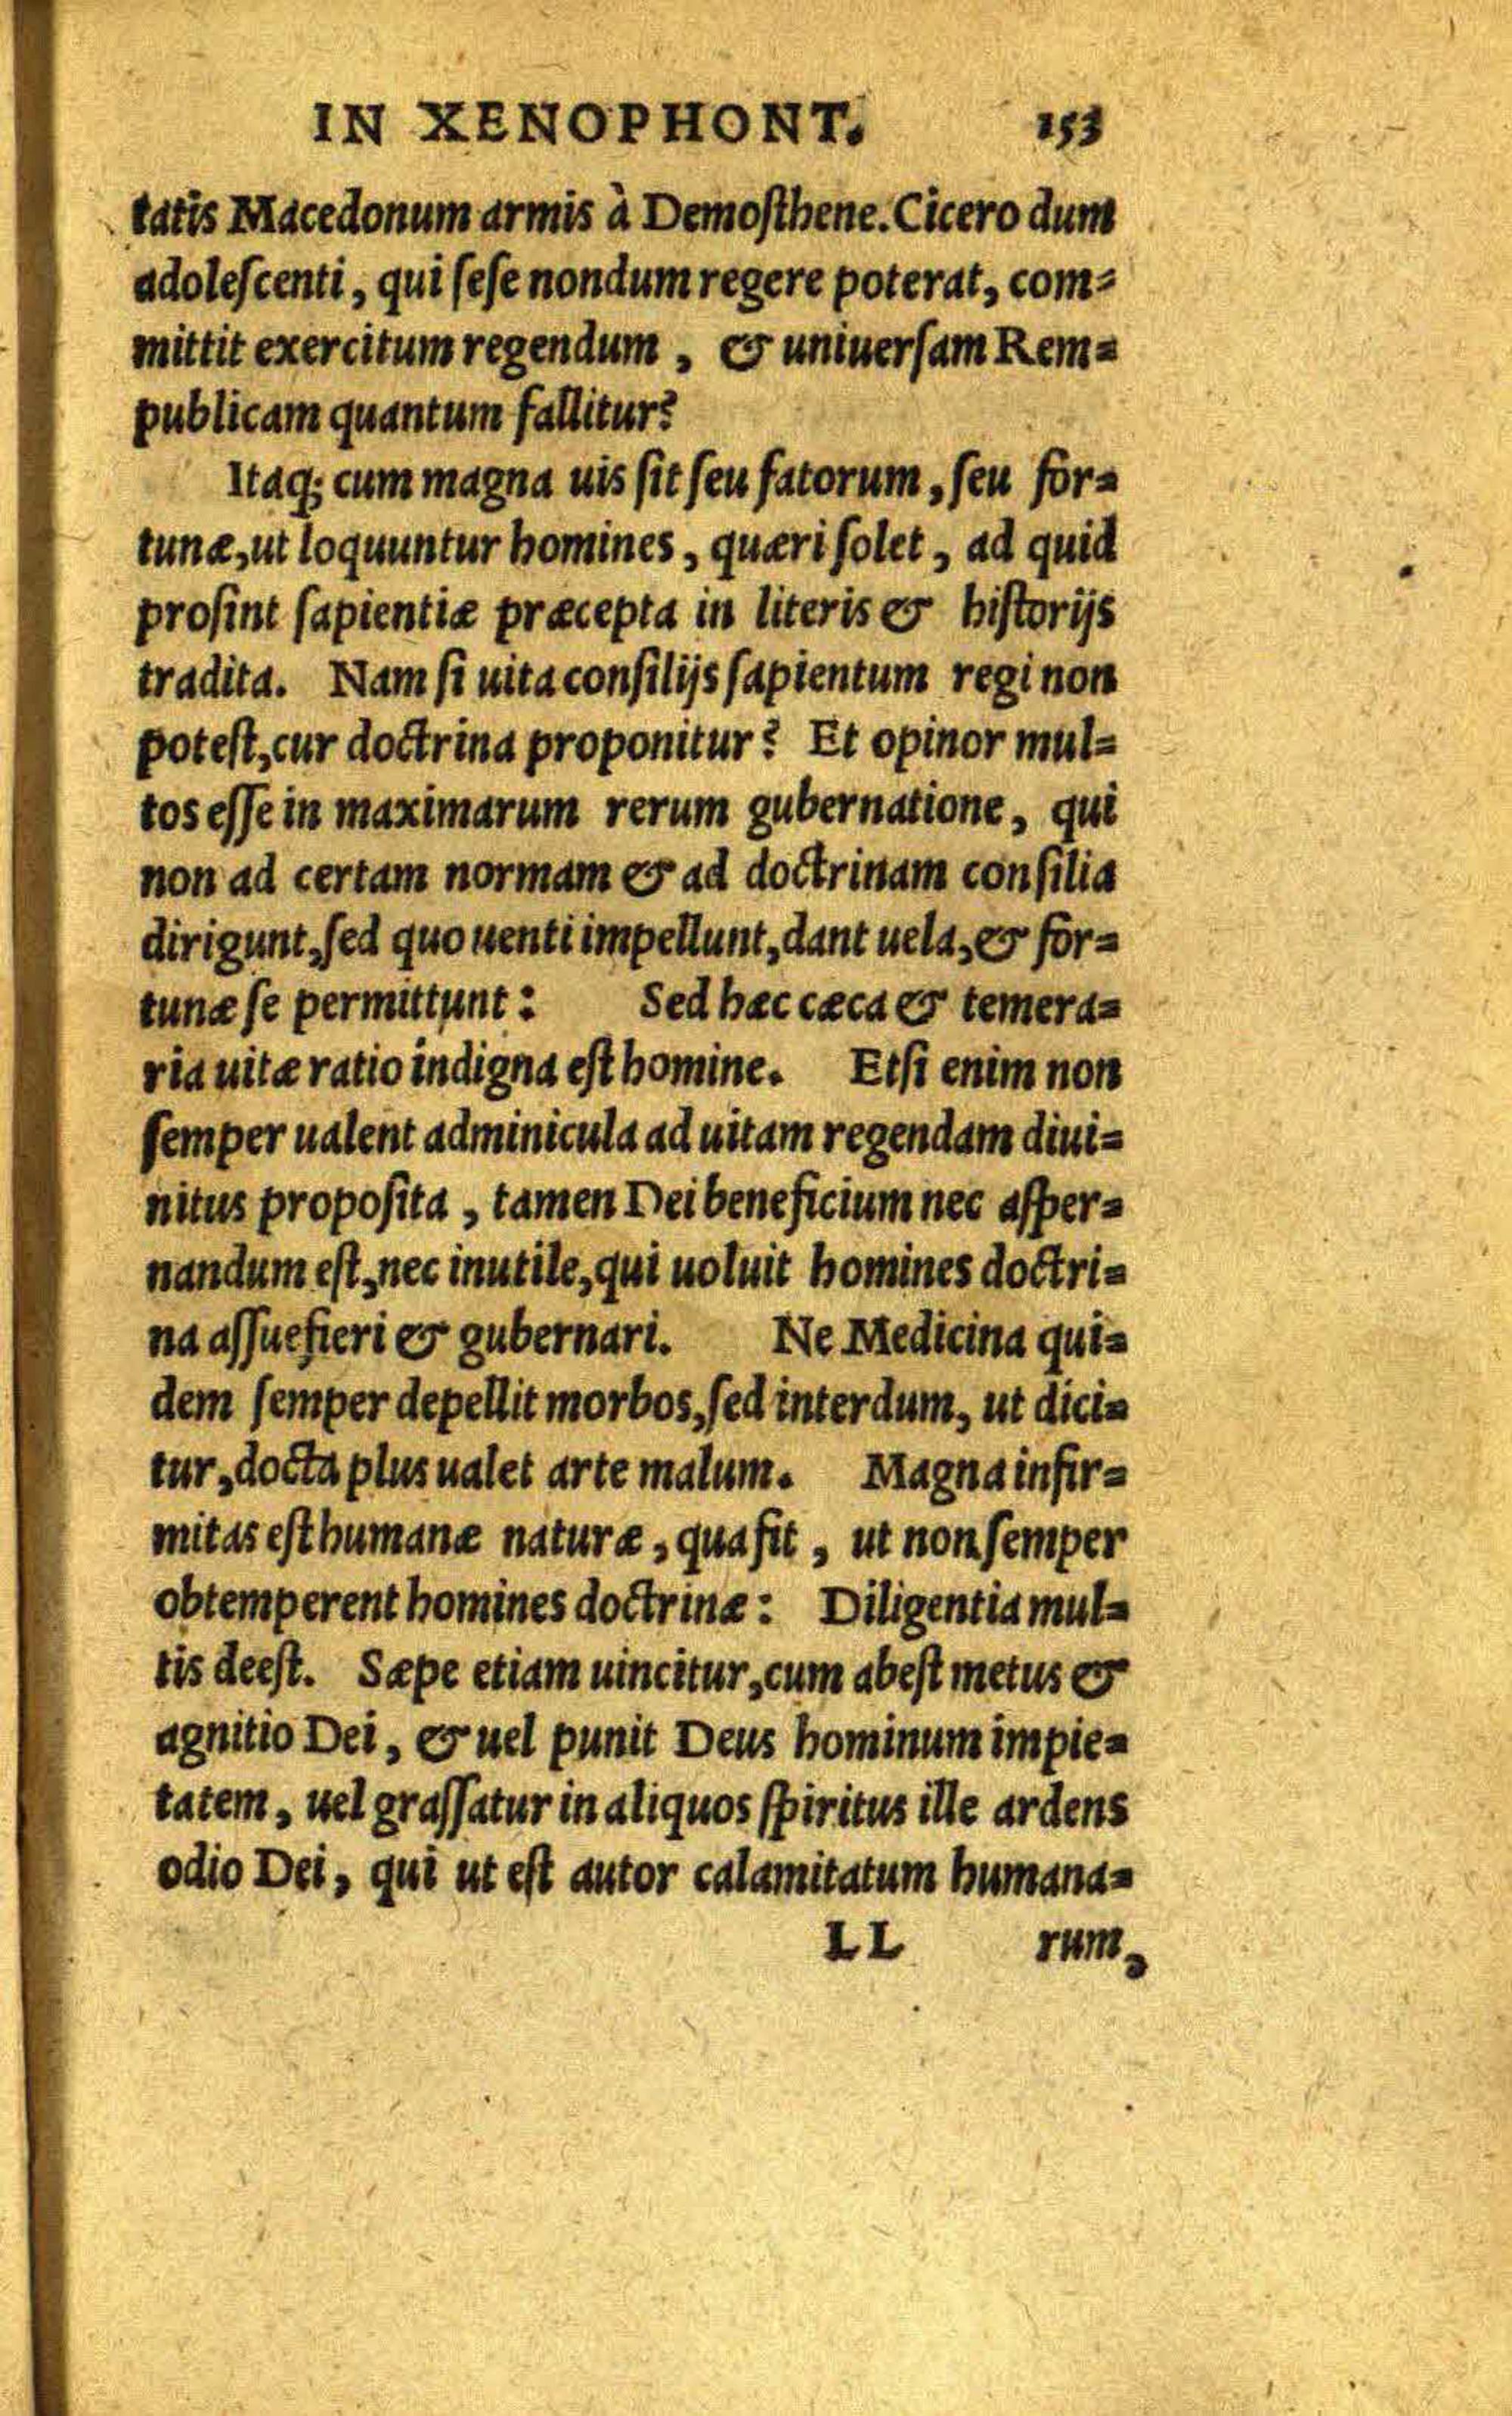 IN XENOPHONT. 153
tatis Macedonum armis à Demoſthene. Cicero dum
adoleſcenti, qui ſeſe nondum regere poterat, com⸗
mittit exercitum regendum, & uniuerſam Rem⸗
publicam quantum fallitur?
Itaq; cum magna uis ſit ſeu fatorum, ſeu for⸗
tunæ, ut loquuntur homines, quæri ſolet, ad quid
proſint ſapientiæ præcepta in literis & hiſtorijs
tradita. Nam ſi uita conſilijs ſapientum regi non
poteſt, cur doctrina proponitur? Et opinor mul⸗
tos eſſe in maximarum rerum gubernatione, qui
non ad certam normam & ad doctrinam conſilia
dirigunt, ſed quo uenti impellunt, dant uela, & for⸗
tunæ ſe permittunt: Sed hæc cæca & temera⸗
ria uitæ ratio indigna eſt homine. Etſi enim non
ſemper ualent adminicula ad uitam regendam diui⸗
nitus propoſita, tamen Dei beneficium nec aſper⸗
nandum eſt, nec inutile, qui uoluit homines doctri⸗
na aſſuefieri & gubernari. Ne Medicina qui⸗
dem ſemper depellit morbos, ſed interdum, ut dici⸗
tur, docta plus ualet arte malum. Magna infir⸗
mitas eſt humanæ naturæ, qua fit, ut non ſemper
obtemperent homines doctrinæ: Diligentia mul⸗
tis deeſt. Sæpe etiam uincitur, cum abeſt metus &
agnitio Dei, & uel punit Deus hominum impie⸗
tatem, uel graſſatur in aliquos ſpiritus ille ardens
odio Dei, qui ut eſt autor calamitatum humana⸗
LL rum,